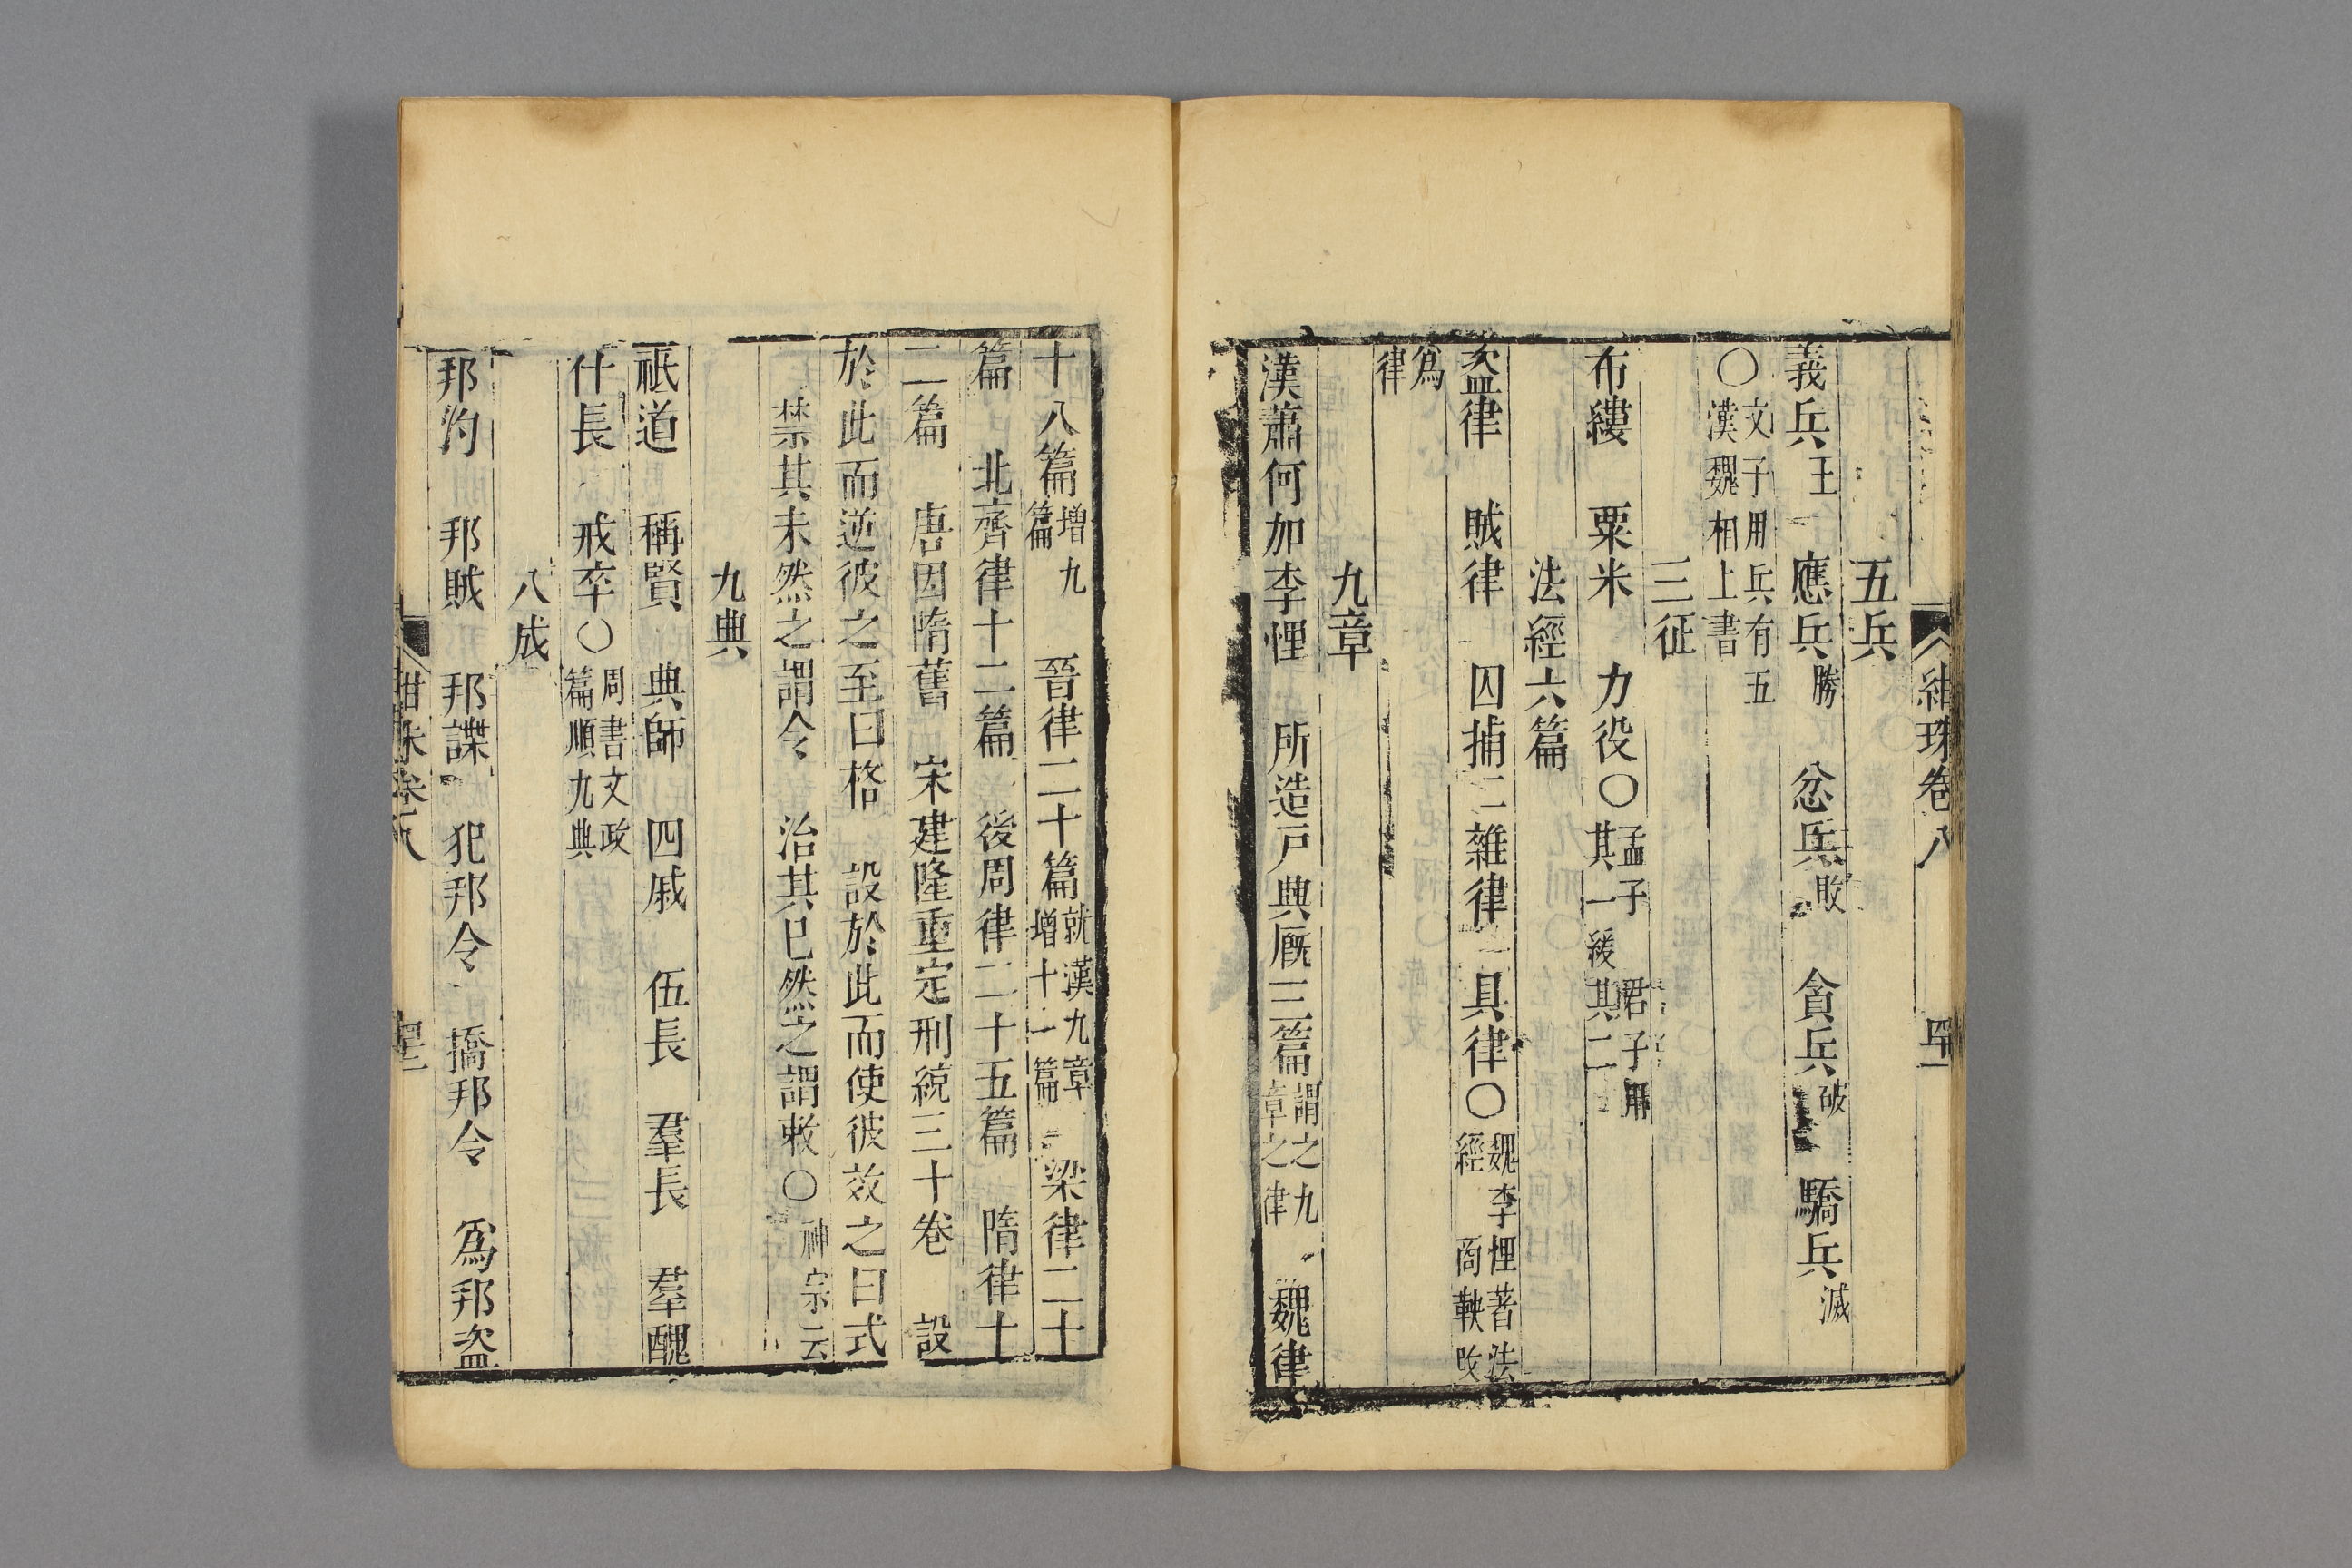 紺珠卷八
五兵
義兵王　應兵勝　忿兵敗　貪兵破　驕兵滅
〇文子用兵有五漢魏相上書
三征
布縷　粟米　力役〇孟子君子用其一緩其二
法經六篇
盜律　賊律　囚捕二　雜律　具律〇魏李悝著法經商鞅改
爲律
九章
漢蕭何加李悝　所造戸興厩三篇謂之九章之律　魏律
十八篇增九篇　晉律二十篇就漢九章增十一篇　梁律二十
篇　北齊律十二篇　後周律二十五篇　隋律十
二篇　唐因隋舊　宋建隆重定刑統三十卷　設
於此而逆彼之至曰格　設於此而使彼效之曰式
禁其未然之謂令　治其已然之謂敕〇神宗云
九典
祗道　稱賢　典師　四戚　伍長　羣長　羣醜
什長　戒卒〇周書文政篇順九典
八成
邦汋　邦賊　邦諜　犯邦令　撟邦令　爲邦盜
紺珠卷八